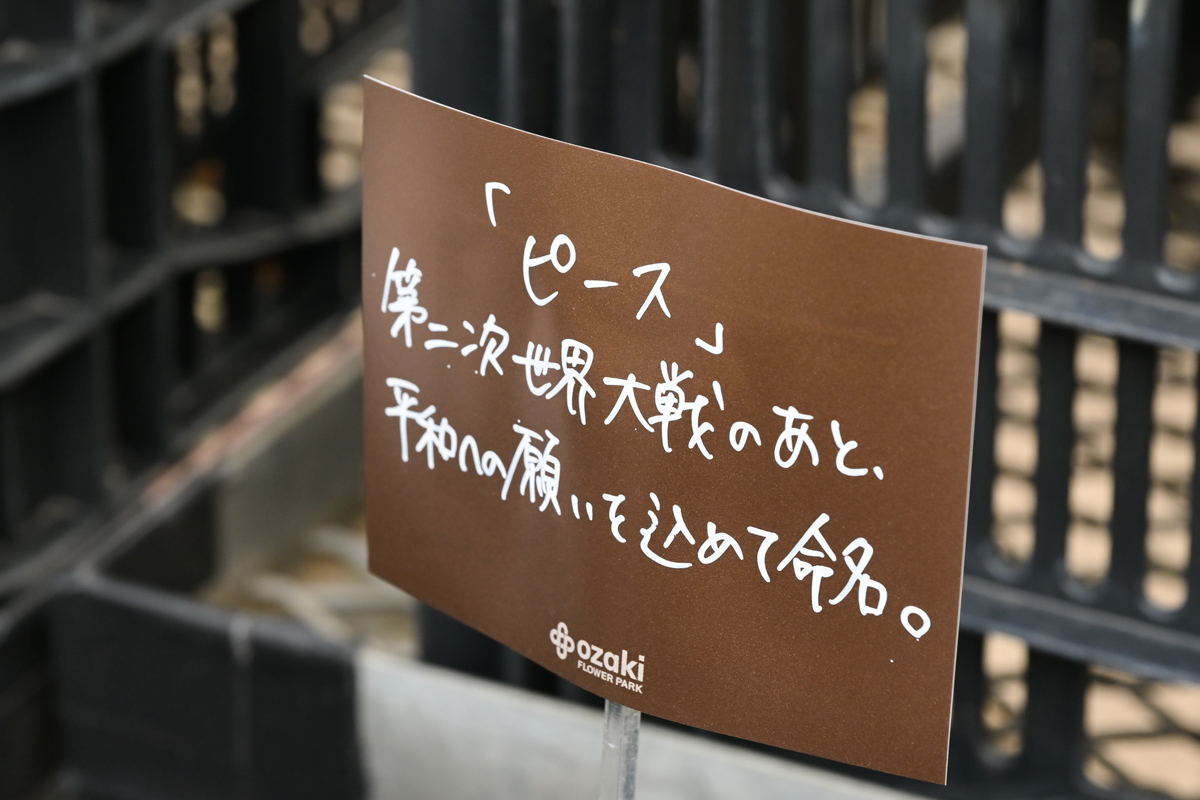 「ピース」
第二次世界大戦のあと、
平和への願いを込めて命名。
ozaki
FLOWER PARK